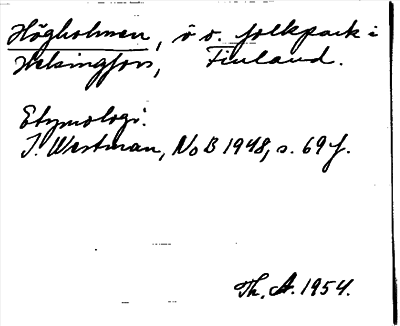 Högholmen, ö o. folkpark i
Helsingfors, Finland.
Etymologi.
I. Westman, NoB 1948, s. 69 f.
Th. A. 1954.